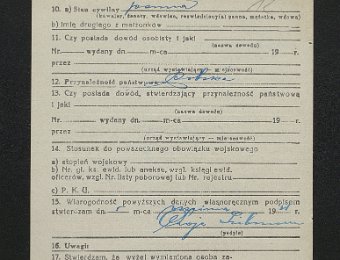 10. a) Stan cywilny panna
(kawaler, żonaty, wdowiec, rozwiedziony(a) panna, mężatka, wdowa)
b) Imię drugiego z małżonków
11. Czy posiada dowód osobisty i jaki
(nazwa dowodu)
Nr. wydany dn. m-ca 19 r.
przez
(urząd wystawiający — miejscowość)
12. Przynależność państwowa polska
13. Czy posiada dowód, stwierdzający przynależność państwową
i jaki
(nazwa dowodu)
Nr. wydany dn. m-ca 19 r.
przez
(urząd wystawiający — miejscowość)
14. Stosunek do powszechnego obowiązku wojskowego
a) stopień wojskowy
b) Nr. gł. ks. ewid. lub aneksu, wzgl. księgi ewid.
oficerów, wzgl. Nr. listy poborowej lub Nr. rejestru
c) P. K. U.
15. Wiarogodność powyższych danych własnoręcznym podpisem
stwierdzam dn. m-ca sierpnia 19 r.
(podpis)
16. Uwagi
17. Stwierdzam, że wyżej wymieniona osoba za-